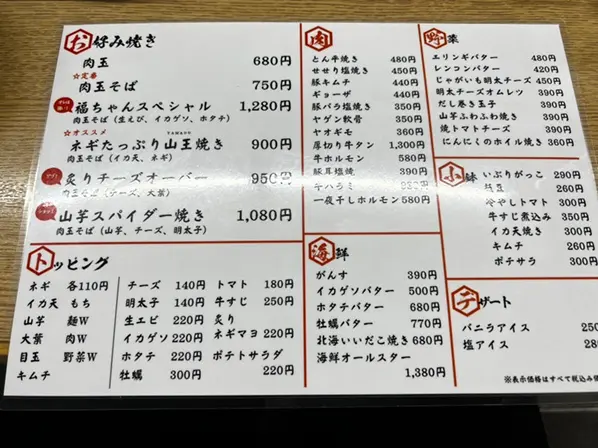 お好み焼き
肉玉 680円
☆定番
肉玉そば 750円
福ちゃんスペシャル 1,280円
肉玉そば（生えび、イカゲソ、ホタテ）
☆オススメ
ネギたっぷり山王焼き 900円
肉玉そば（イカ天、ネギ）
炙りチーズオーバー 950円
肉玉そば（チーズ、大葉）
山芋スパイダー焼き 1,080円
肉玉そば（山芋、チーズ、明太子）
トッピング
ネギ 各110円
イカ天 もち
山芋 麺W
大葉 肉W
目玉 野菜W
キムチ
チーズ 140円
明太子 140円
生エビ 220円
イカゲソ 220円
ホタテ 220円
牡蠣 300円
トマト 180円
牛すじ 250円
炙り
ネギマヨ 220円
ポテトサラダ
220円
肉
とん平焼き 480円
せせり塩焼き 450円
豚キムチ 440円
ギョーザ 440円
豚バラ塩焼き 350円
ヤゲン軟骨 350円
ヤオギモ 360円
厚切り牛タン 1,300円
牛ホルモン 580円
豚耳塩焼 350円
牛ハラミ
一夜干しホルモン 580円
海鮮
がんす 390円
イカゲソバター 500円
ホタテバター 680円
牡蠣バター 770円
北海いいだこ焼き 680円
海鮮オールスター
1,380円
野菜
エリンギバター 480円
レンコンバター 420円
じゃがいも明太チーズ 450円
明太チーズオムレツ 390円
だし巻き玉子 390円
山芋ふわふわ焼き 390円
焼トマトチーズ 390円
にんにくのホイル焼き 360円
小鉢
いぶりがっこ 290円
枝豆 260円
冷やしトマト 300円
牛すじ煮込み 350円
イカ天焼き 360円
キムチ 260円
ポテサラ 300円
デザート
バニラアイス
塩アイス
※表示価格はすべて税込み